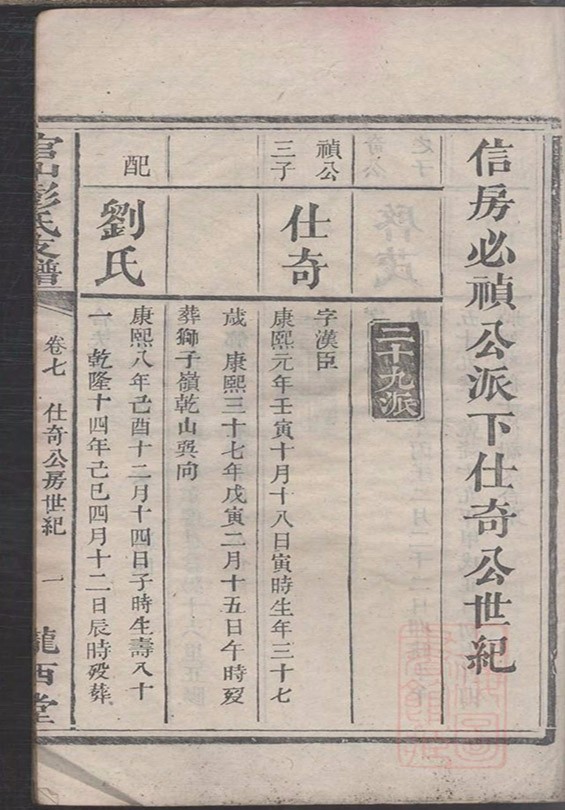 信房必禎公派下仕奇公世紀
二十九派
禎公
三子
仕奇
字漢臣
康熙元年壬寅十月十八日寅時生年三十七
歳 康熙三十七年戊寅二月十五日午時歿
葬獅子嶺乾山巽向
配
劉氏
康熙八年己酉十二月十四日子時生壽八十
一 乾隆十四年己巳四月十二日辰時歿葬
官山彭氏支譜
卷七 仕奇公房世紀 一
隴西堂